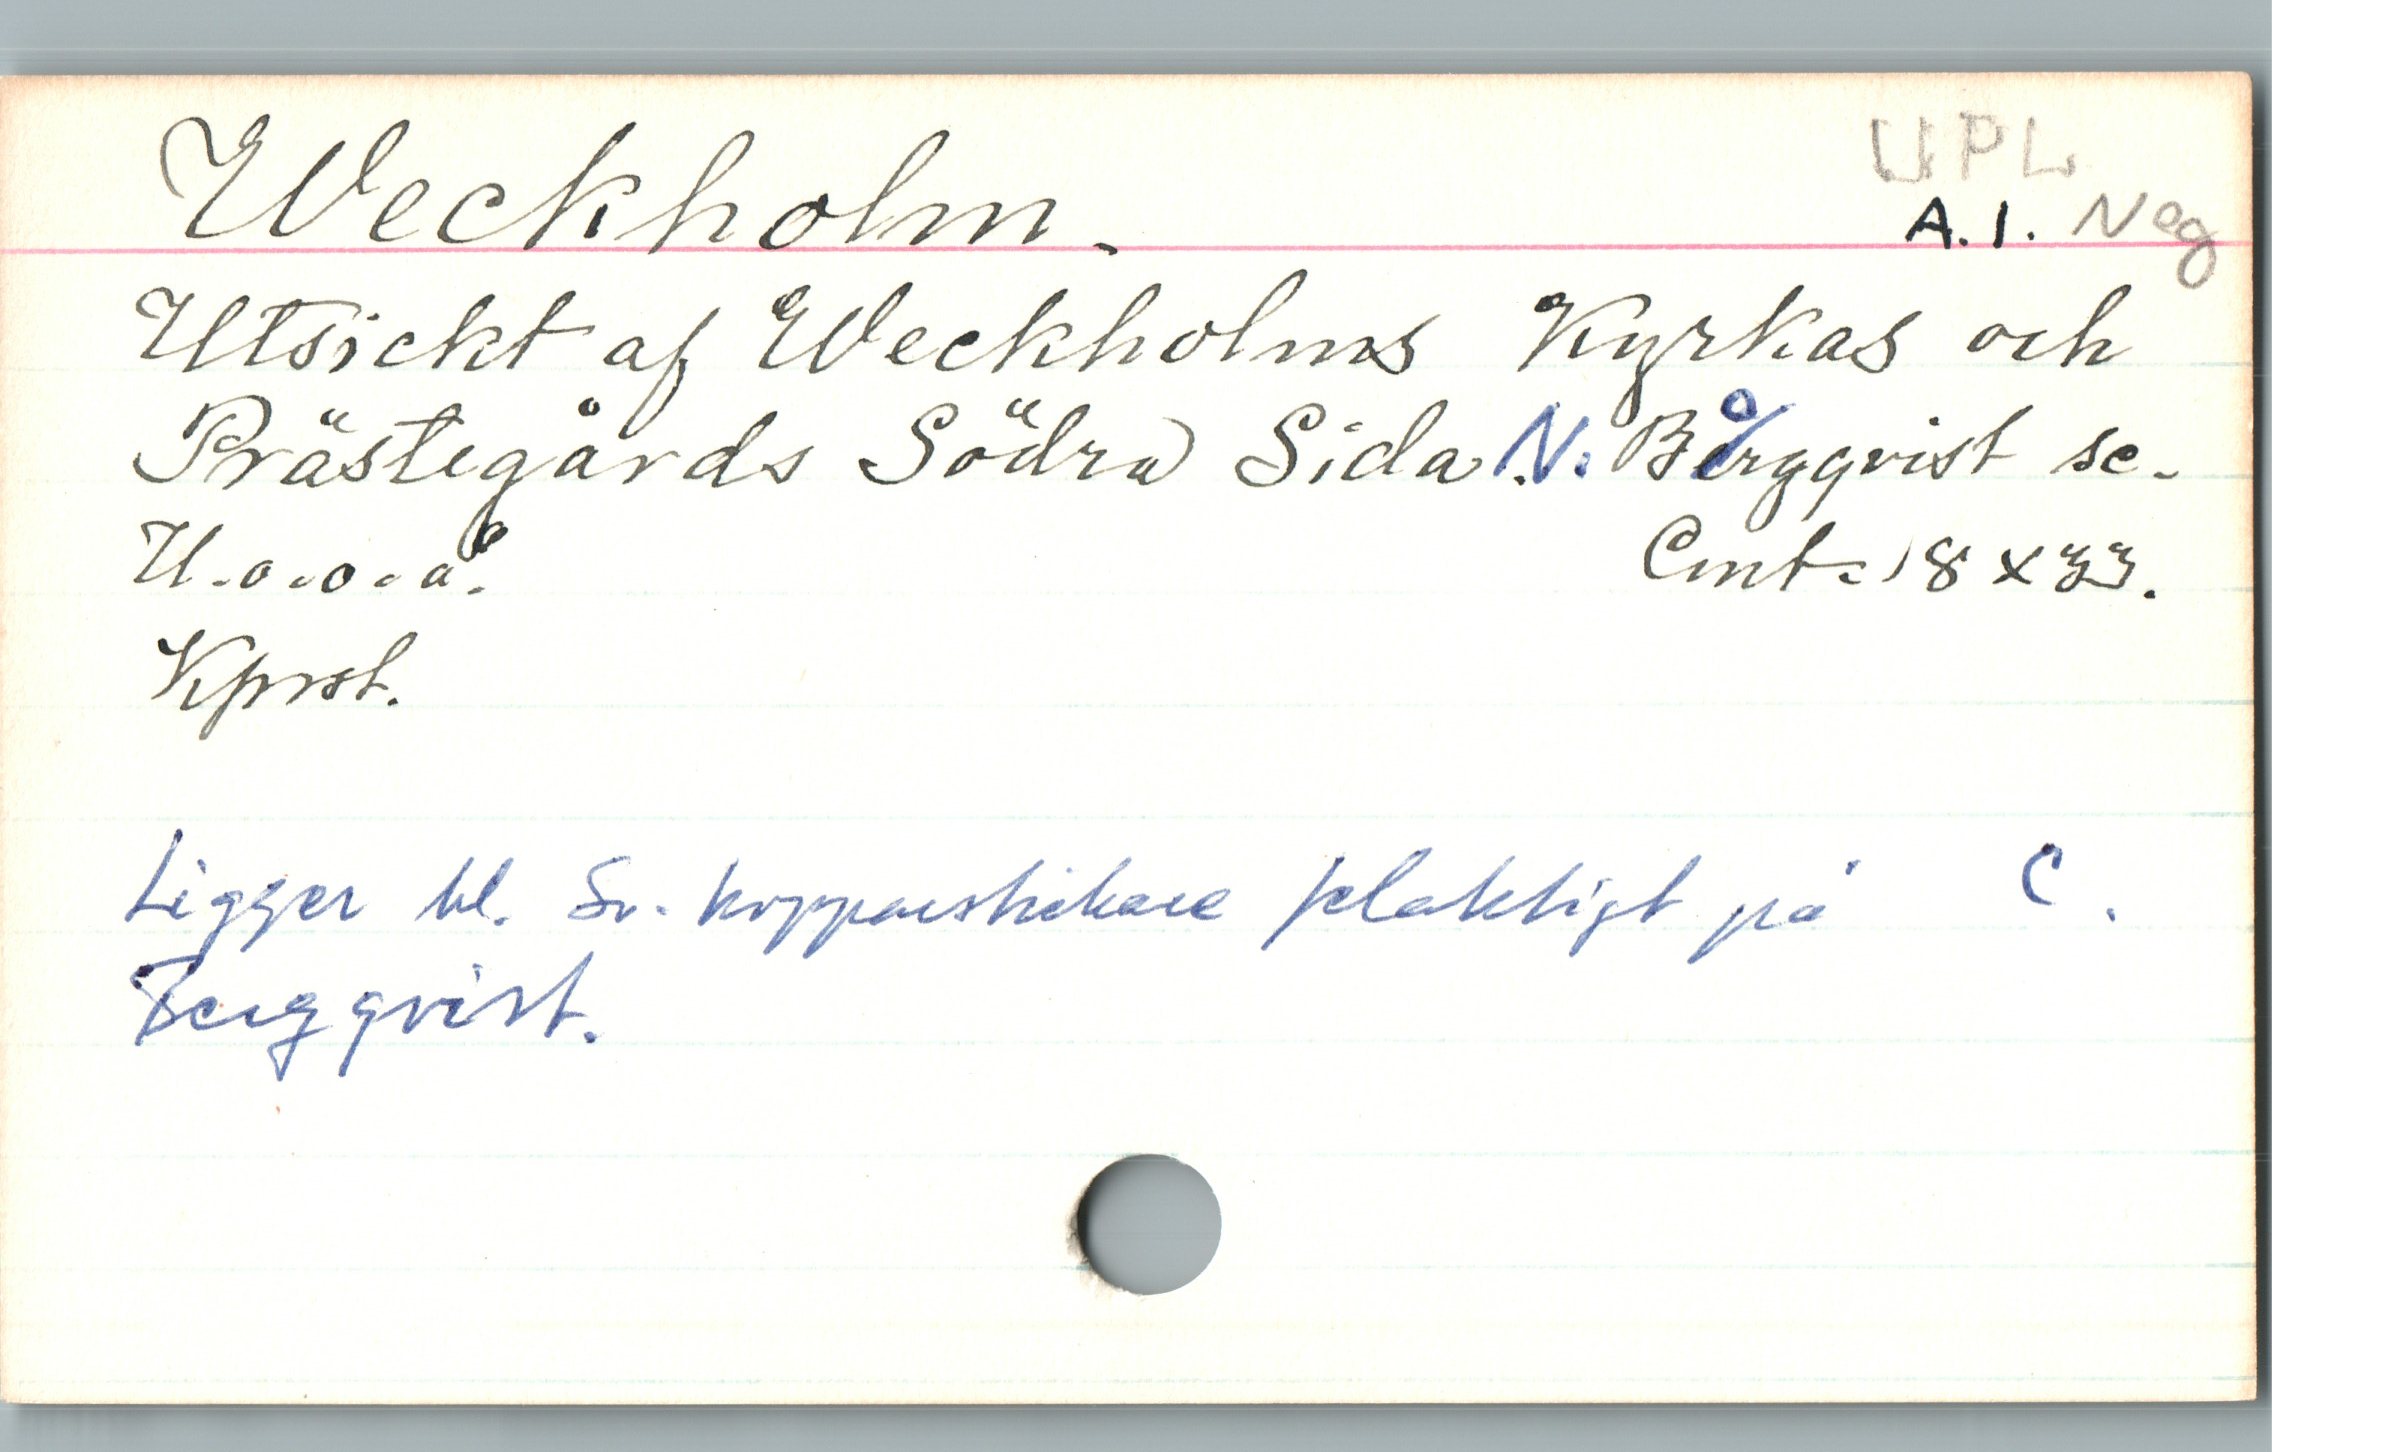 UPL
Weckholm.
A. 1. Neg
Utsickt af Weckholms Kyrkas och
Prästegårds Södra Sida. N. Borgqvist sc.
U. o. o. å.
Cmt. 18 x 33.
Kprst.
Ligger bl. Sv. kopparstickare felaktigt på C.
Bergqvist.